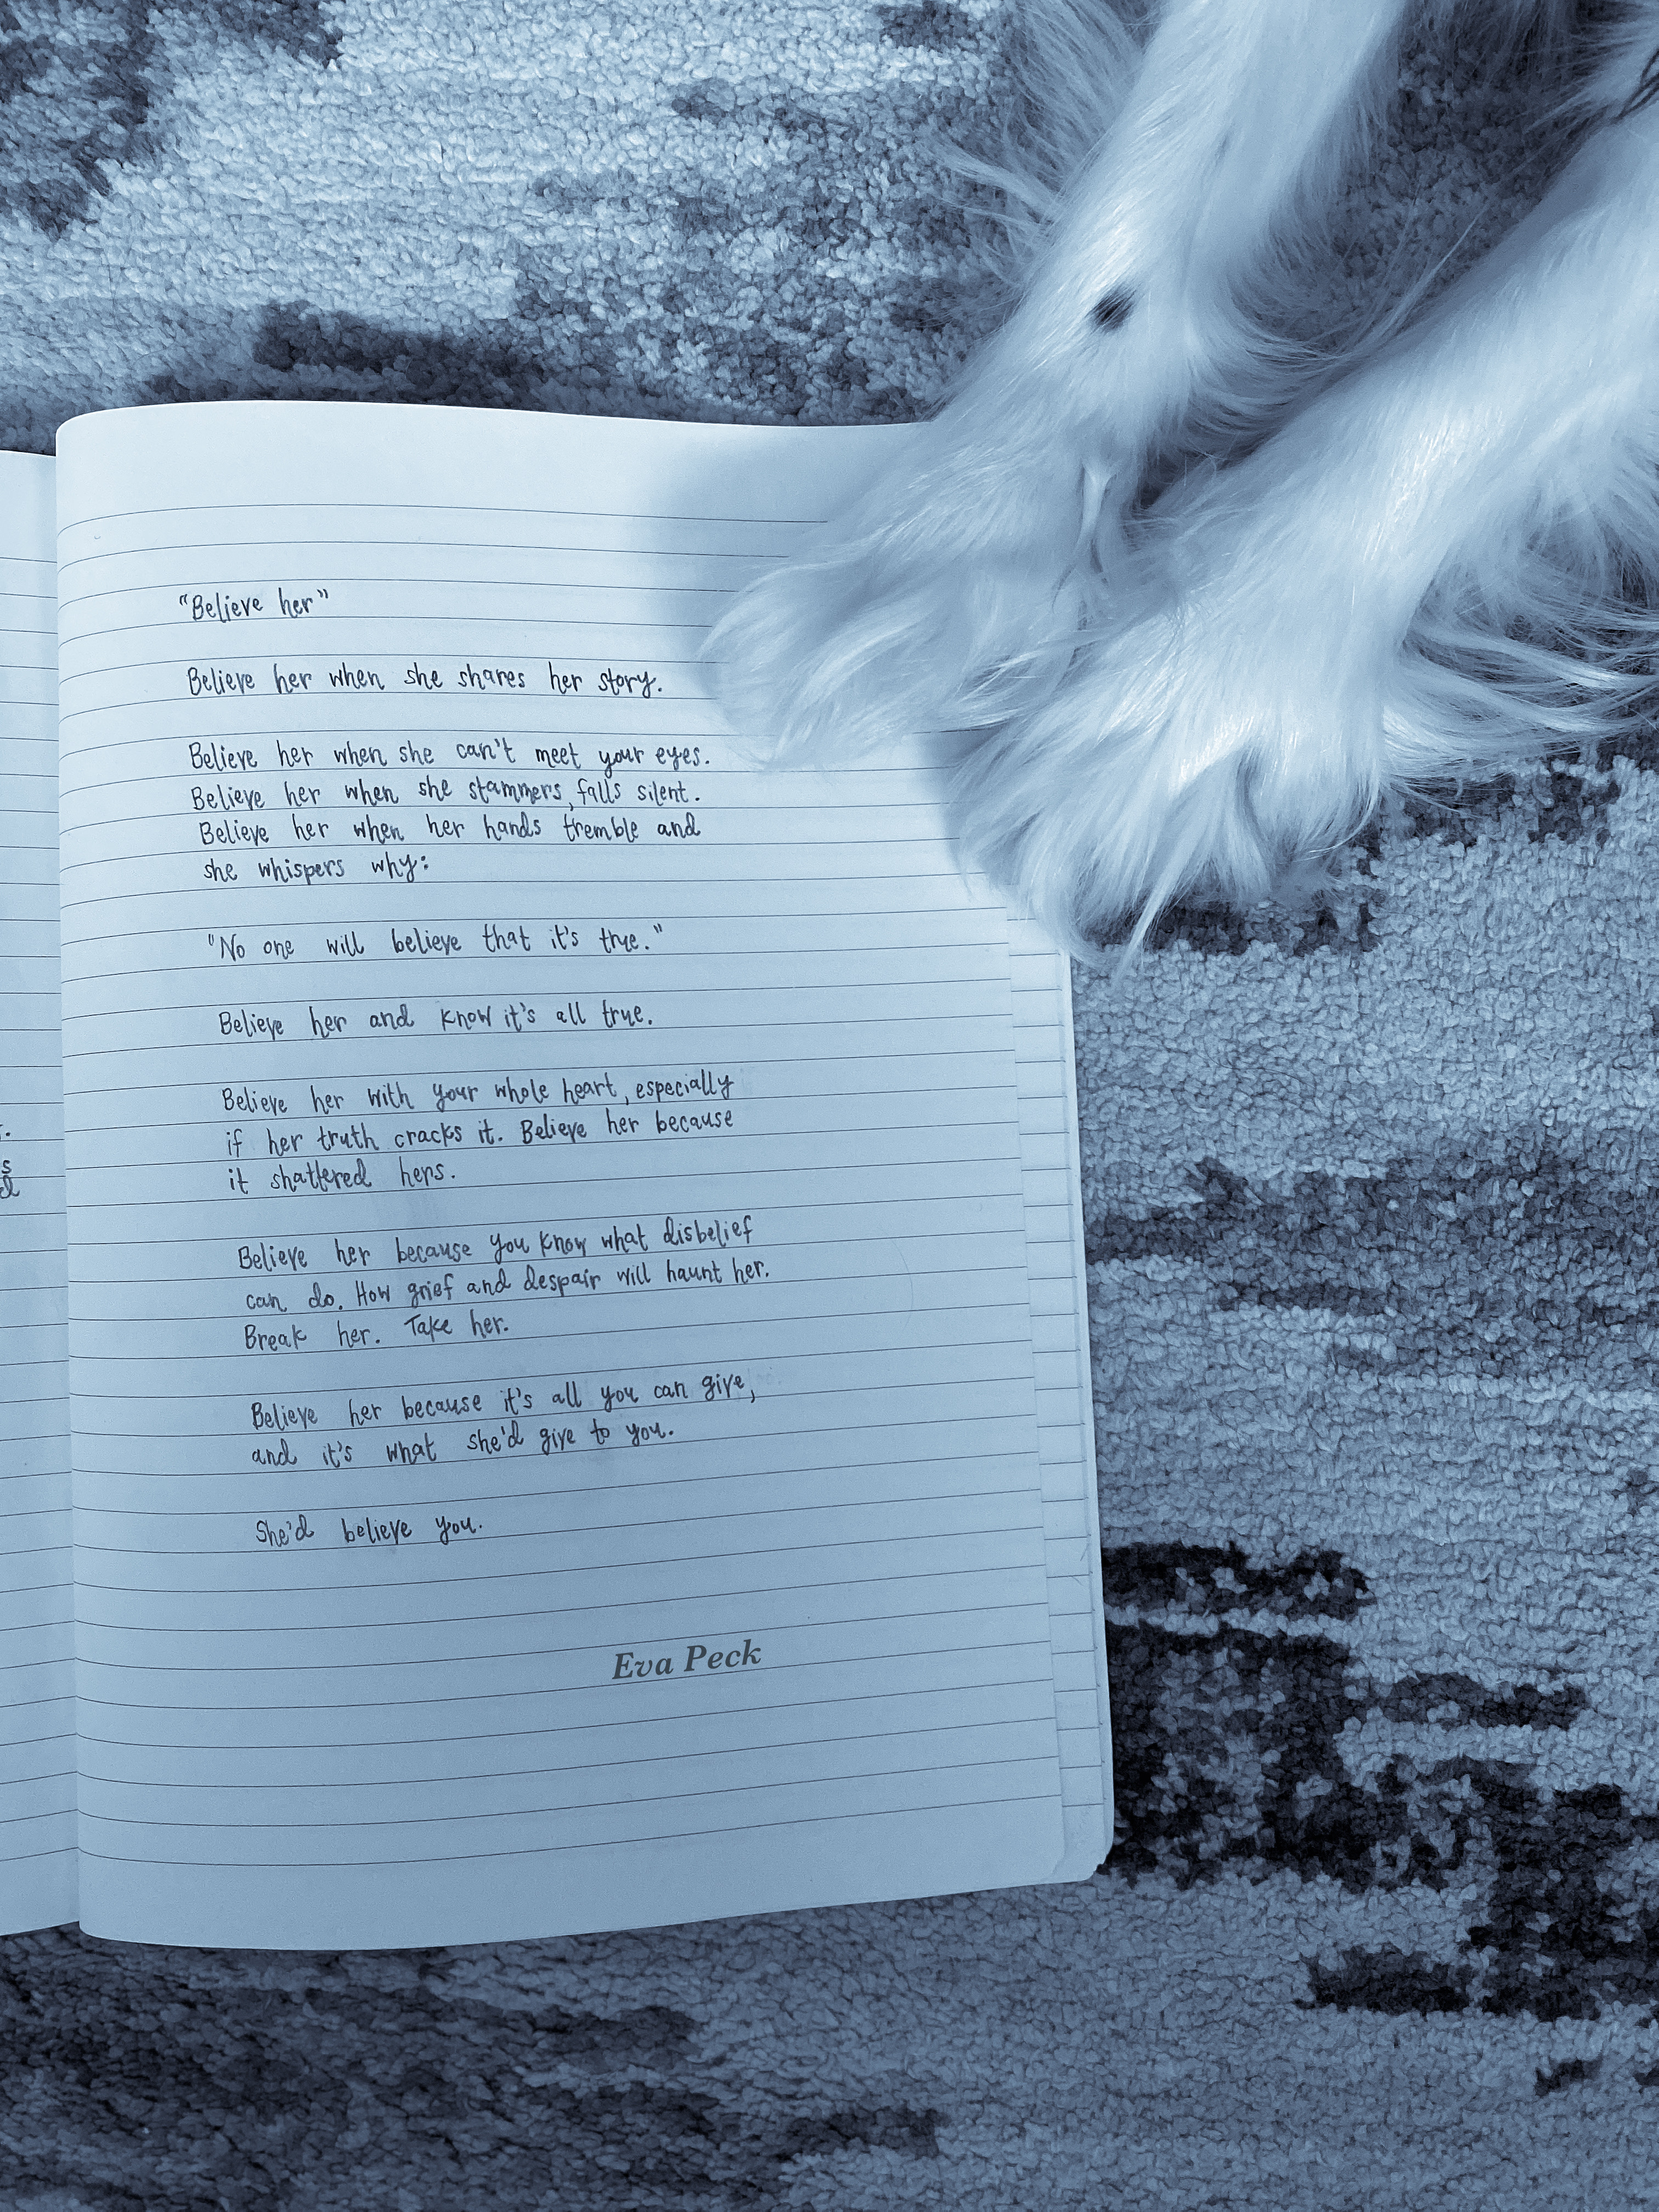 "Believe her"
Believe her when she shares her story.
Believe her when she can't meet your eyes.
Believe her when she stammers, falls silent.
Believe her when her hands tremble and
she whispers why:
"No one will believe that it's true."
Believe her and know it's all true.
Believe her with your whole heart, especially
if her truth cracks it. Believe her because
it shattered hers.
Believe her because you know what disbelief
can do. How grief and despair will haunt her.
Break her. Take her.
Believe her because it's all you can give,
and it's what she'd give to you.
She'd believe you.
Eva Peck